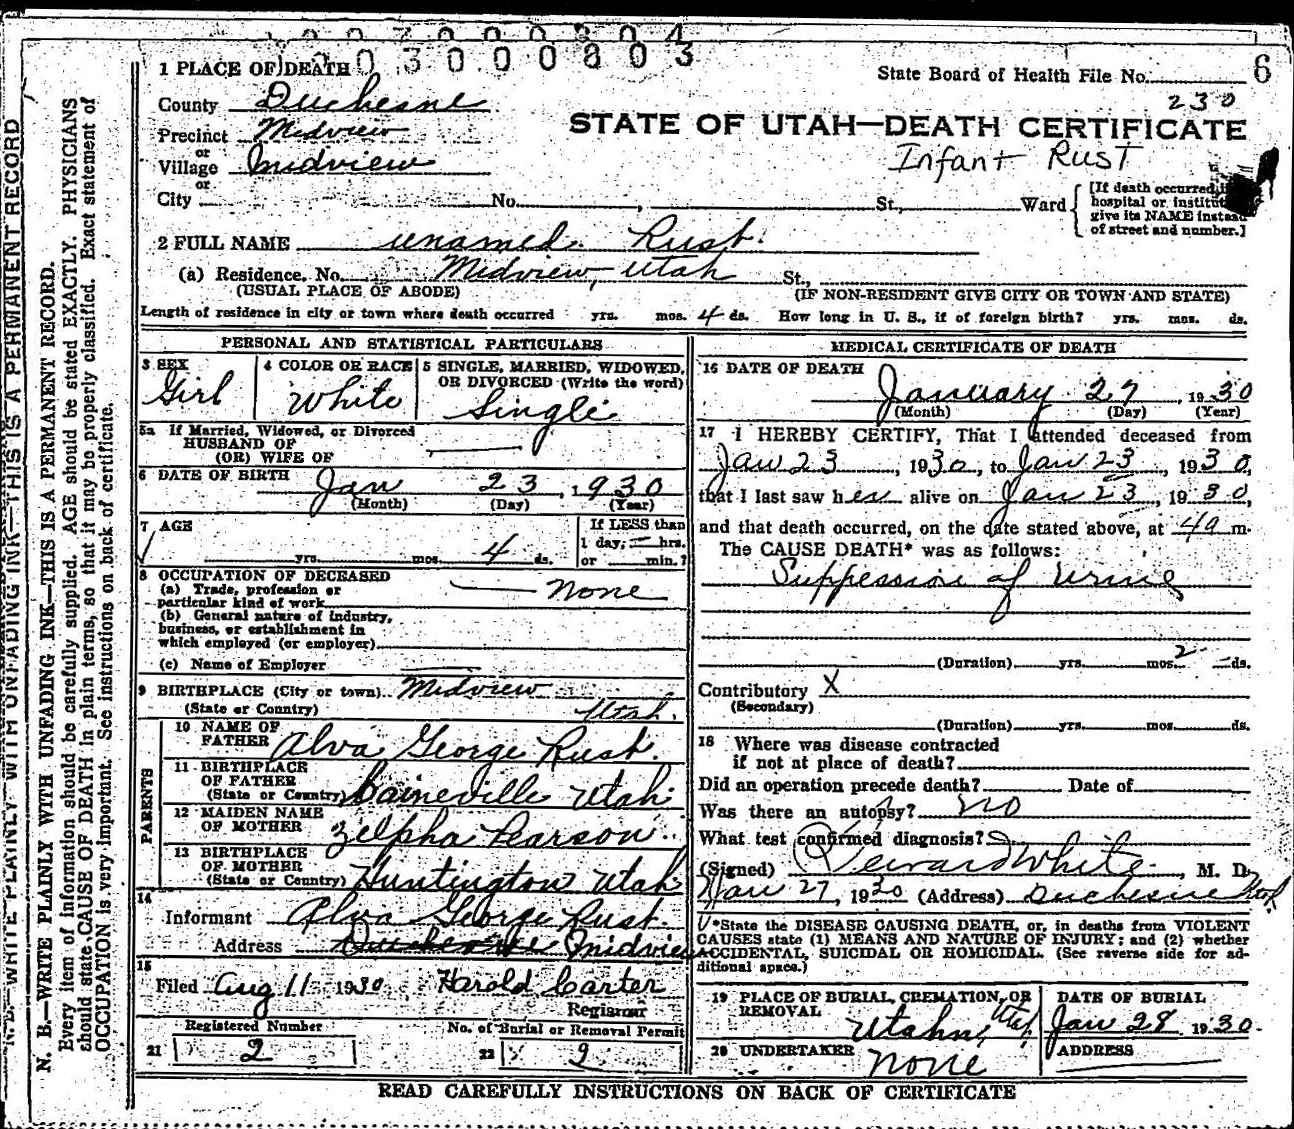 003000803
6
1 PLACE OF DEATH
State Board of Health File No.
230
County Duchesne
STATE OF UTAH—DEATH CERTIFICATE
Precinct Midview
or
Infant Rust
Village Midview
or
City No. St., Ward
[If death occurred
hospital or institut
give its NAME instead
of street and number.]
2 FULL NAME unamed. Rust.
(a) Residence. No. Midview, Utah St.,
(USUAL PLACE OF ABODE) (IF NON-RESIDENT GIVE CITY OR TOWN AND STATE)
Length of residence in city or town where death occurred yrs. mos. 4 ds. How long in U. S., if of foreign birth? yrs. mos. ds.
PERSONAL AND STATISTICAL PARTICULARS
3 SEX
Girl
4 COLOR OR RACE
White
5 SINGLE, MARRIED, WIDOWED,
OR DIVORCED (Write the word)
Single
5a If Married, Widowed, or Divorced
HUSBAND OF
(OR) WIFE OF
6 DATE OF BIRTH
Jan 23, 1930
(Month) (Day) (Year)
7 AGE
yrs. mos. 4 ds.
If LESS than
1 day, — hrs.
or min.?
8 OCCUPATION OF DECEASED
(a) Trade, profession or
particular kind of work None
(b) General nature of industry,
business, or establishment in
which employed (or employer)
(c) Name of Employer
9 BIRTHPLACE (City or town) Midview
(State or Country) Utah.
PARENTS
10 NAME OF
FATHER Alva George Rust.
11 BIRTHPLACE
OF FATHER
(State or Country) Caineville Utah
12 MAIDEN NAME
OF MOTHER Zelpha Pearson
13 BIRTHPLACE
OF MOTHER
(State or Country) Huntington Utah
14
Informant Alva George Rust.
Address Midview
15
Filed Aug 11 1930 Harold Carter
Registrar
Registered Number
21 2
No. of Burial or Removal Permit
22 2
MEDICAL CERTIFICATE OF DEATH
16 DATE OF DEATH
January 27, 1930
(Month) (Day) (Year)
17 I HEREBY CERTIFY, That I attended deceased from
Jan 23, 1930, to Jan 23, 1930,
that I last saw her alive on Jan 23, 1930,
and that death occurred, on the date stated above, at 4a m.
The CAUSE DEATH* was as follows:
Suppession of Urine
(Duration) yrs. mos. 2 ds.
Contributory X
(Secondary)
(Duration) yrs. mos. ds.
18 Where was disease contracted
if not at place of death?
Did an operation precede death? Date of
Was there an autopsy? no
What test confirmed diagnosis?
(Signed) White, M. D.
Jan 27, 1930 (Address) Duchesne Utah
*State the DISEASE CAUSING DEATH, or, in deaths from VIOLENT
CAUSES state (1) MEANS AND NATURE OF INJURY; and (2) whether
ACCIDENTAL, SUICIDAL OR HOMICIDAL. (See reverse side for ad-
ditional space.)
19 PLACE OF BURIAL, CREMATION, OR
REMOVAL Utahn, Utah
DATE OF BURIAL
Jan 28 1930.
20 UNDERTAKER
None
ADDRESS
READ CAREFULLY INSTRUCTIONS ON BACK OF CERTIFICATE
N. B.—WRITE PLAINLY WITH UNFADING INK—THIS IS A PERMANENT RECORD
N. B.—WRITE PLAINLY WITH UNFADING INK—THIS IS A PERMANENT RECORD.
Every item of information should be carefully supplied. AGE should be stated EXACTLY. PHYSICIANS
should state CAUSE OF DEATH in plain terms, so that it may be properly classified. Exact statement of
OCCUPATION is very important. See instructions on back of certificate.